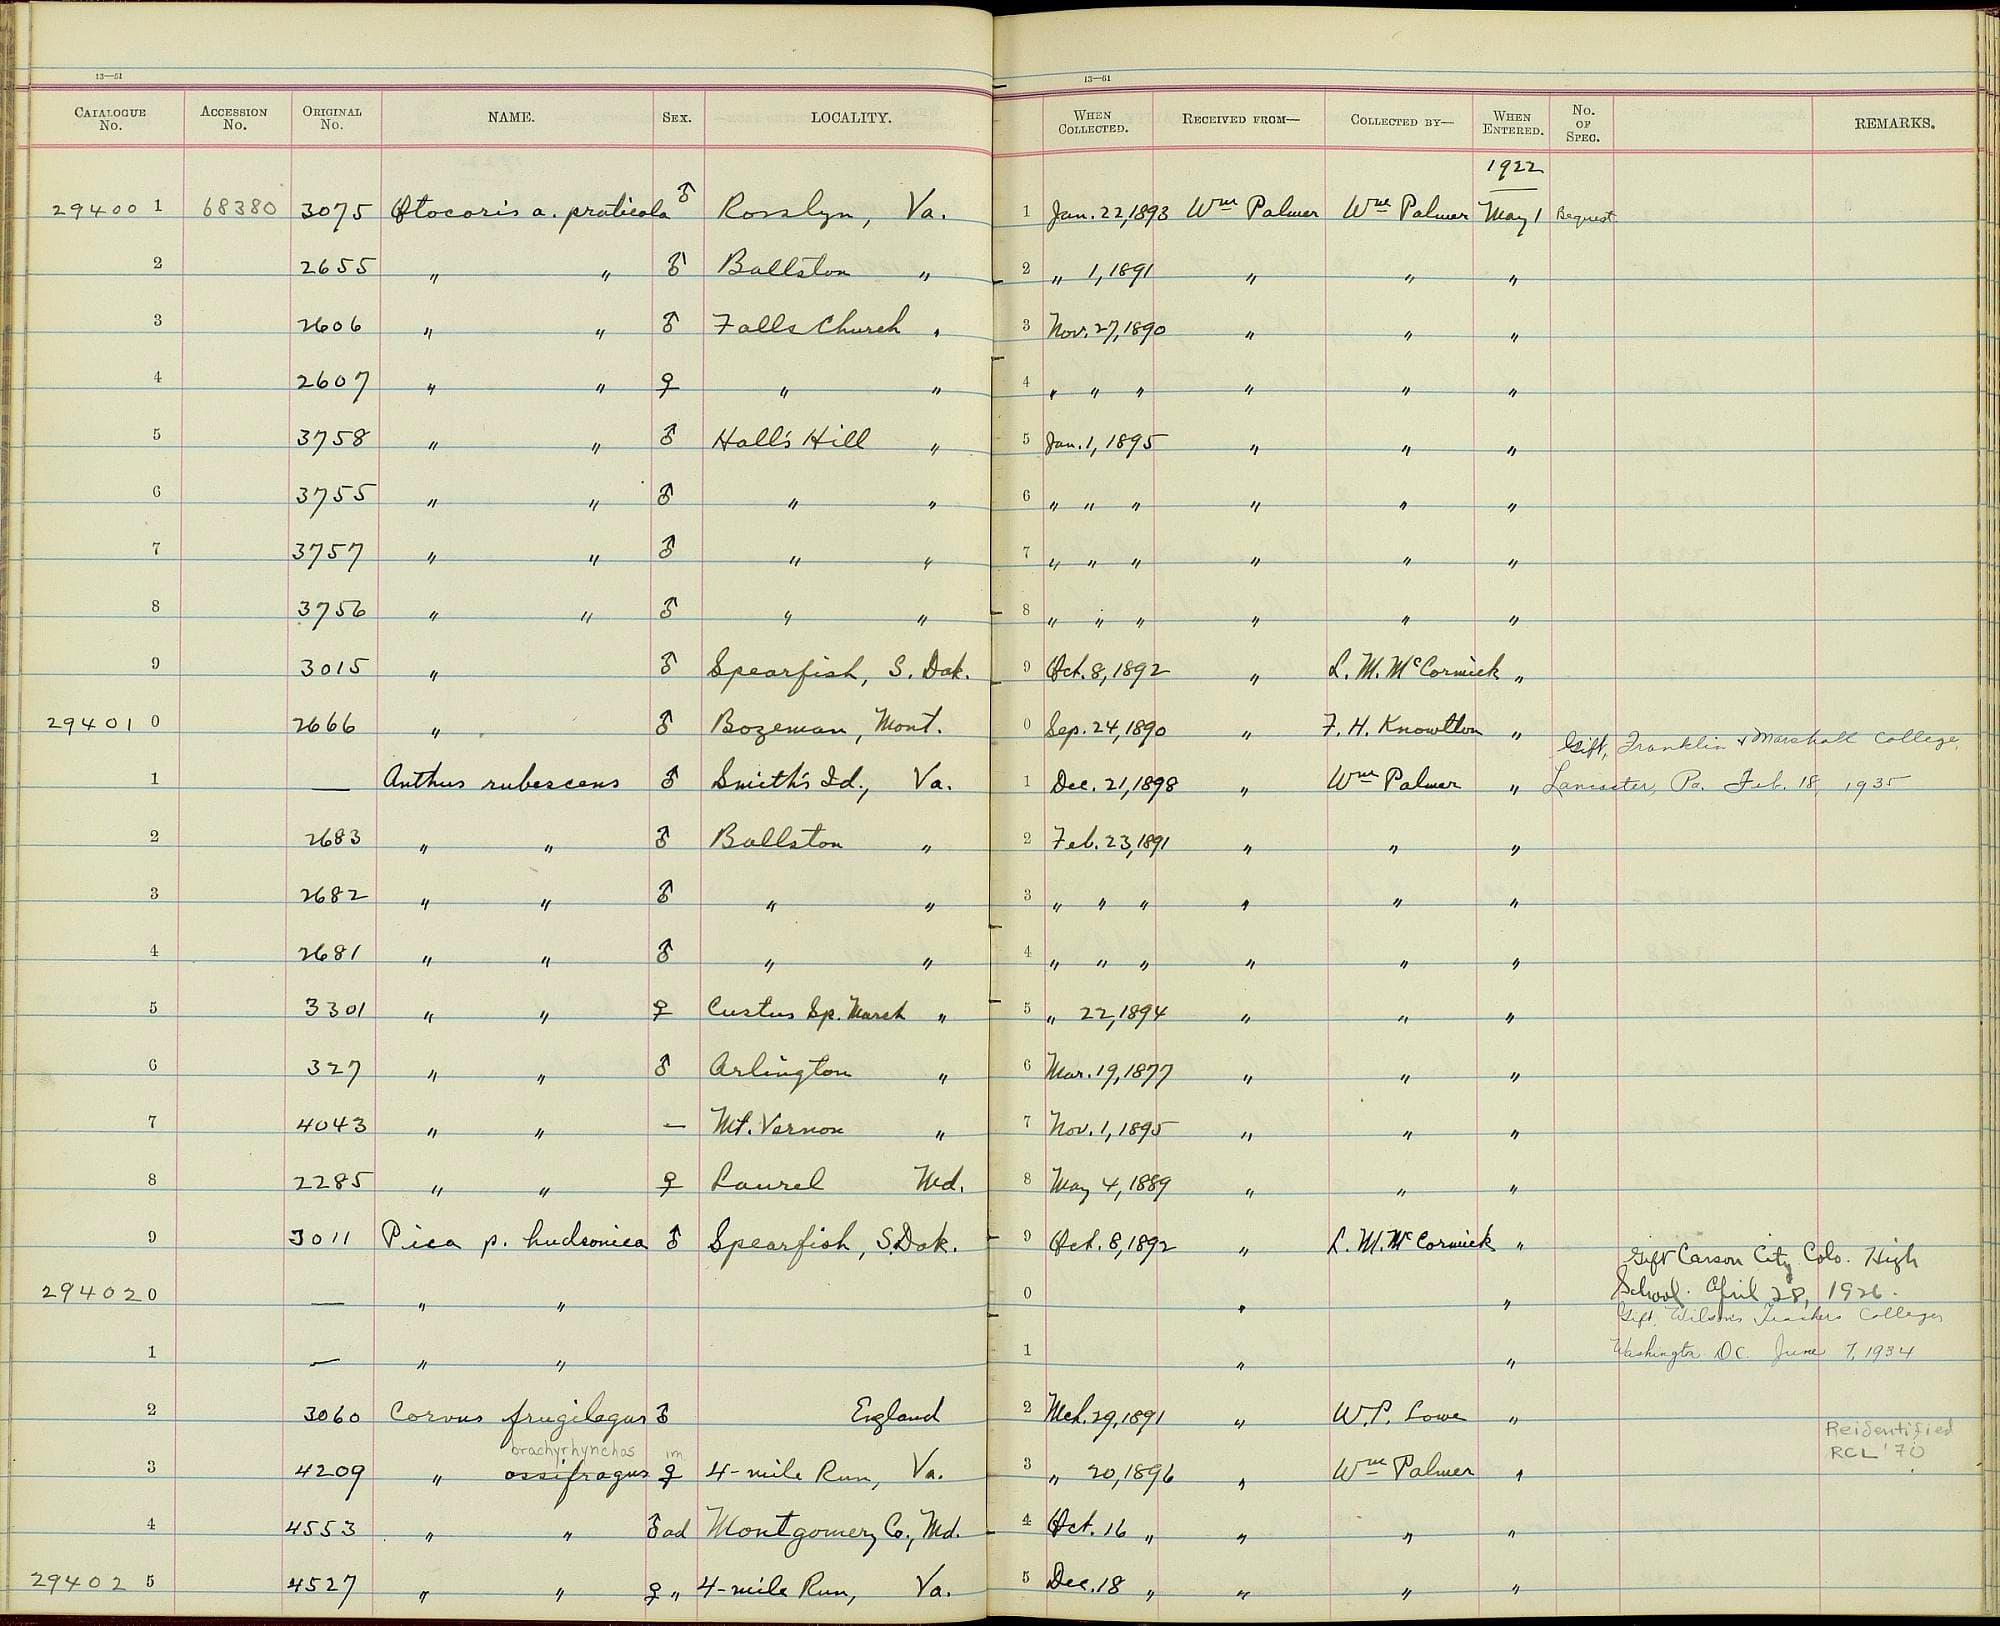 13—51
CATALOGUE No. ACCESSION No. ORIGINAL No. NAME. SEX. LOCALITY.
29400 1 68380 3075 Otocoris a. praticola ♂ Rosslyn, Va.
2 2655 " " ♂ Ballston "
3 2606 " " ♂ Falls Church "
4 2607 " " ♀ " "
5 3758 " " ♂ Hall's Hill "
6 3755 " " ♂ " "
7 3757 " " ♂ " "
8 3756 " " ♂ " "
9 3015 " ♂ Spearfish, S. Dak.
29401 0 2666 " ♂ Bozeman, Mont.
1 — Anthus rubescens ♂ Smith's Id., Va.
2 2683 " " ♂ Ballston "
3 2682 " " ♂ " "
4 2681 " " ♂ " "
5 3301 " " ♀ Custus Sp. Marsh "
6 327 " " ♂ Arlington "
7 4043 " " — Mt. Vernon "
8 2285 " " ♀ Laurel Md.
9 3011 Pica p. hudsonica ♂ Spearfish, S. Dak.
29402 0 — " "
1 — " "
2 3060 Corvus frugilegus ♂ England
brachyrhynchos im
3 4209 " ossifragus ♀ 4-mile Run, Va.
4 4553 " " ♂ ad Montgomery Co., Md.
29402 5 4527 " " ♀ " 4-mile Run, Va.
13—51
WHEN COLLECTED. RECEIVED FROM— COLLECTED BY— WHEN ENTERED. No. OF SPEC. REMARKS.
1922
1 Jan. 22, 1893 Wm Palmer Wm Palmer May 1 Bequest
2 " 1, 1891 " " "
3 Nov. 27, 1890 " " "
4 " " " " " "
5 Jan. 1, 1895 " " "
6 " " " " " "
7 " " " " " "
8 " " " " " "
9 Oct. 8, 1892 " L. M. McCormick "
0 Sep. 24, 1890 " F. H. Knowlton "
Gift, Franklin & Marshall College,
1 Dec. 21, 1898 " Wm Palmer " Lancaster, Pa. Feb. 18, 1935
2 Feb. 23, 1891 " " "
3 " " " " " "
4 " " " " " "
5 " 22, 1894 " " "
6 Mar. 19, 1877 " " "
7 Nov. 1, 1895 " " "
8 May 4, 1889 " " "
9 Oct. 8, 1892 " L. M. McCormick "
Gift Carson City Colo. High
0 " " School. April 28, 1926.
Gift, Wilson's Teachers College
1 " " Washington D.C. June 7, 1934
2 Mch. 29, 1891 " W. P. Lowe "
Reidentified
3 " 20, 1896 " Wm Palmer " RCL '70
4 Oct. 16 " " " "
5 Dec. 18 " " " "